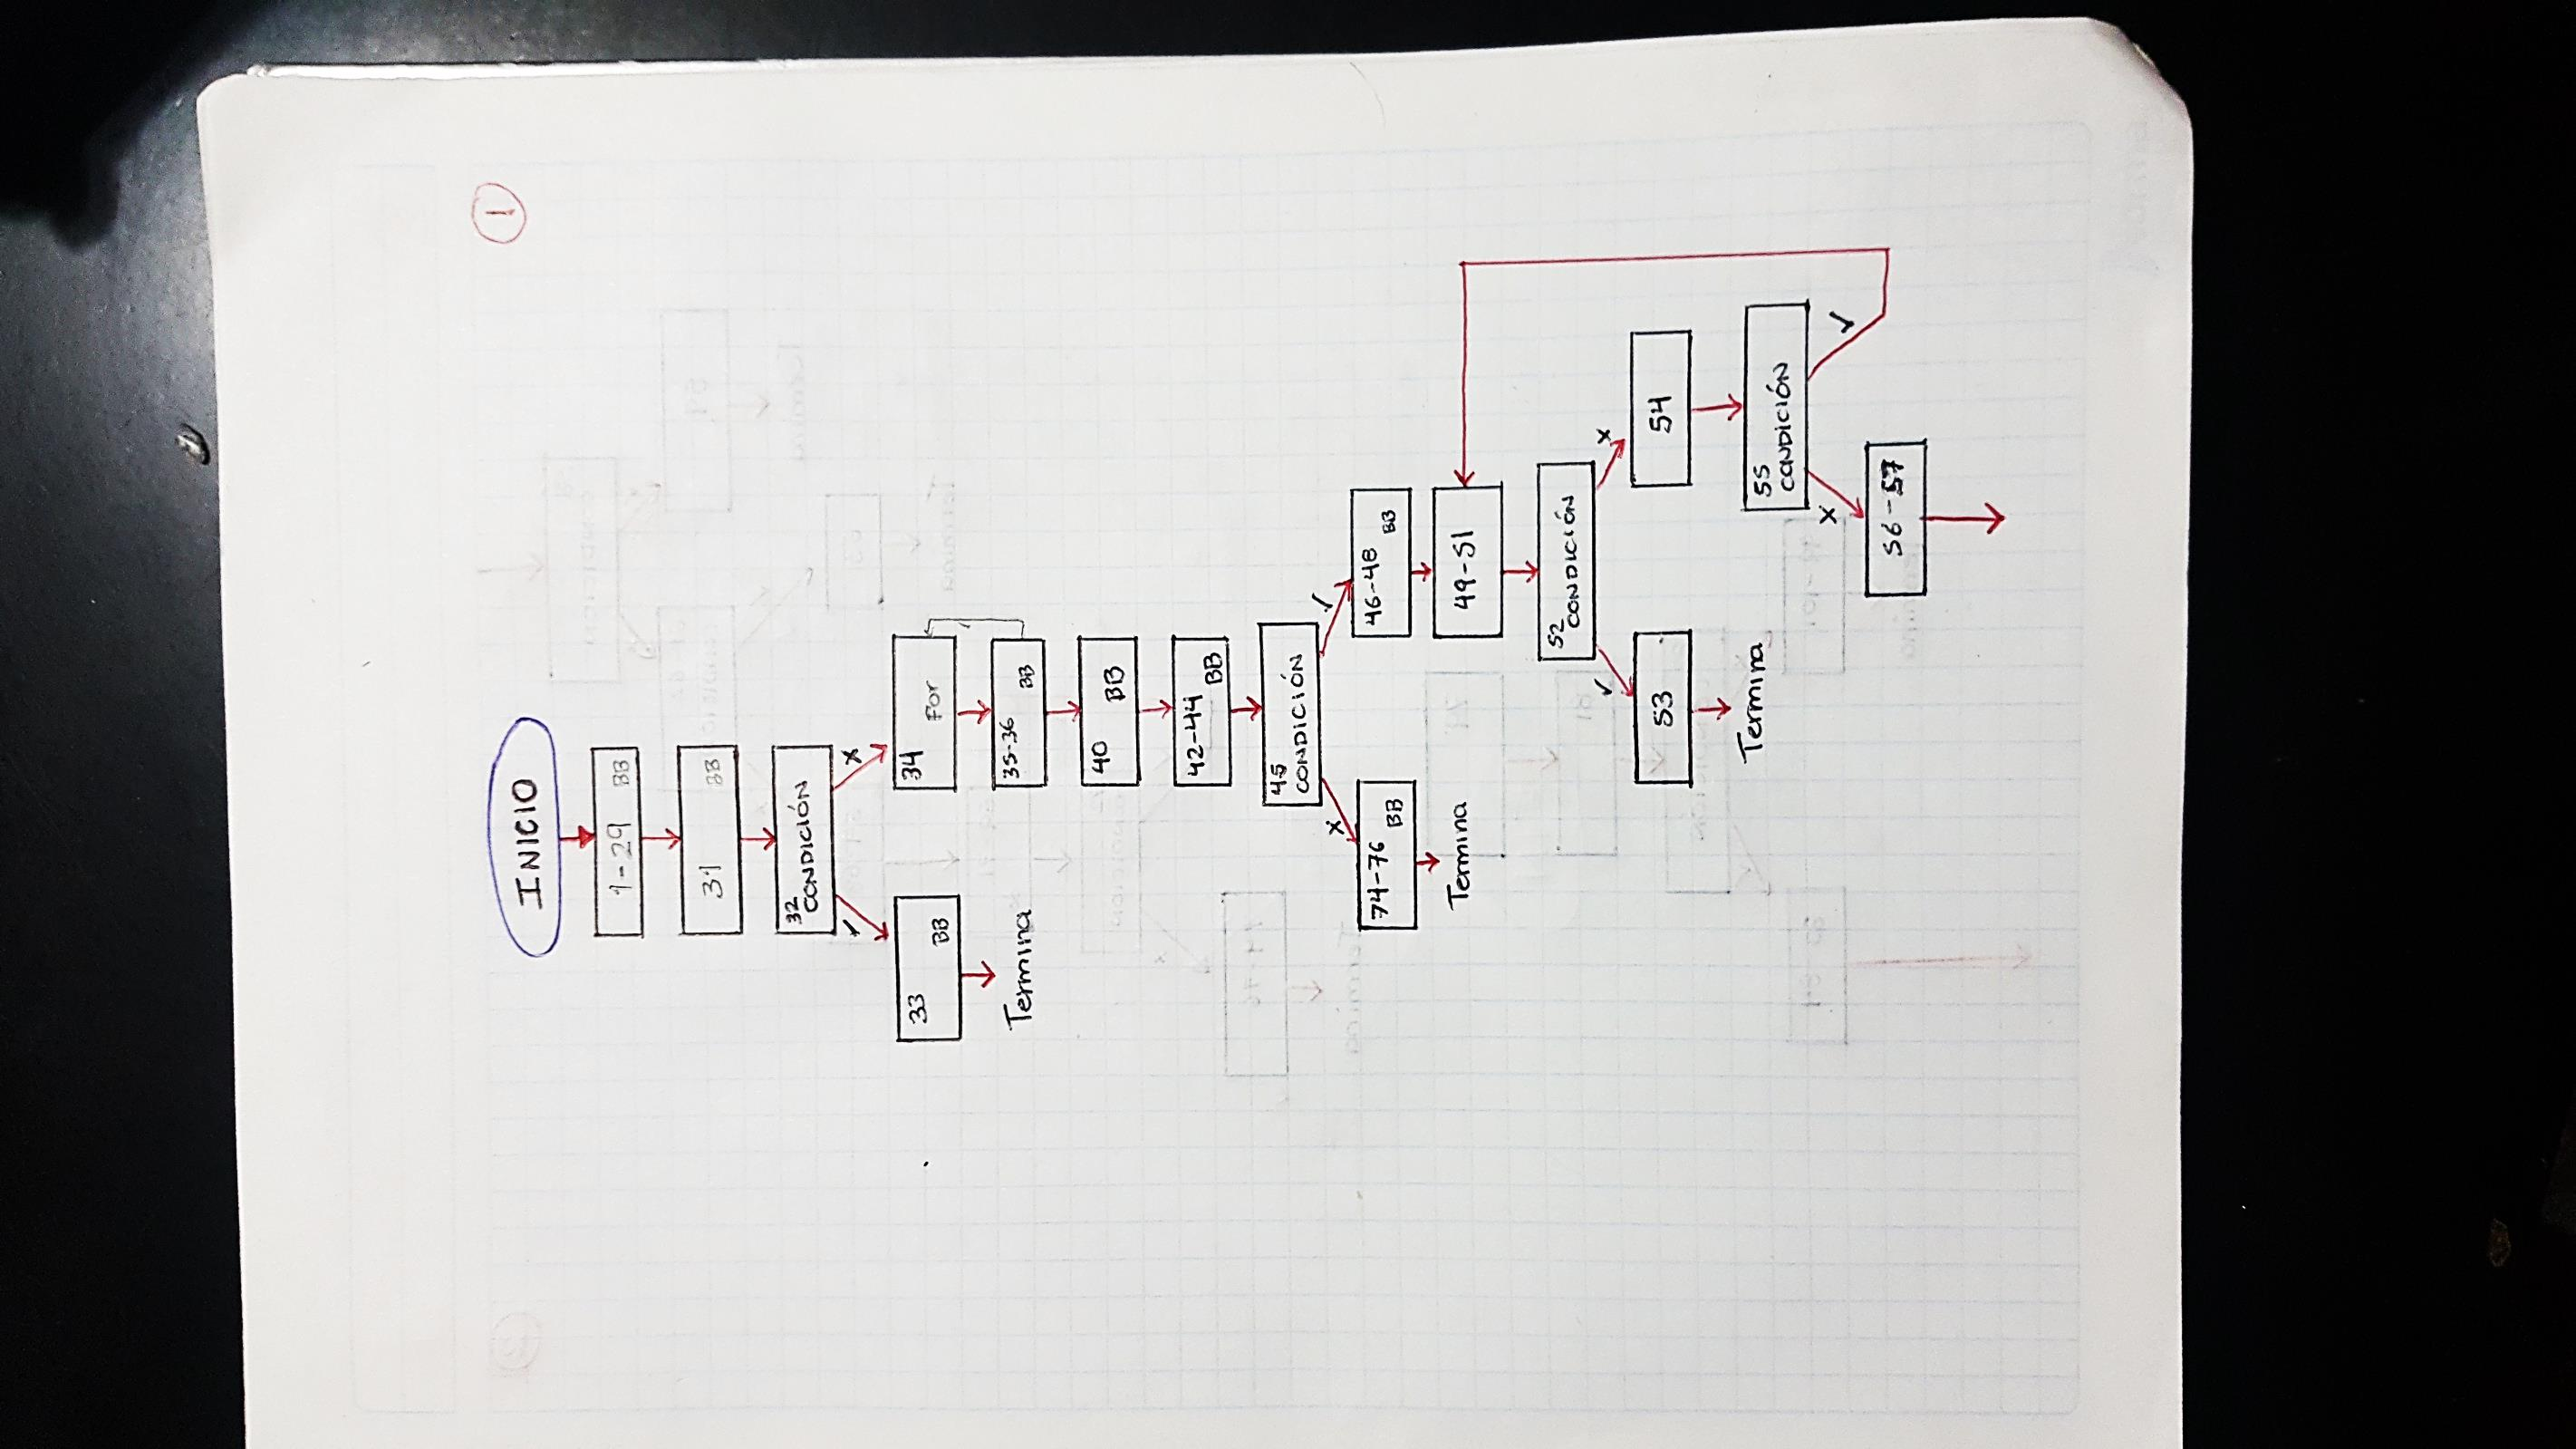 1
INICIO
1-29 BB
31 BB
32
CONDICIÓN
✓ x
33 BB
Termina
34 For
35-36 BB
40 BB
42-44 BB
45
CONDICIÓN
x ✓
74-76 BB
Termina
46-48 BB
49-51
52
CONDICIÓN
✓ x
53
Termina
54
55
CONDICIÓN
x ✓
56-57